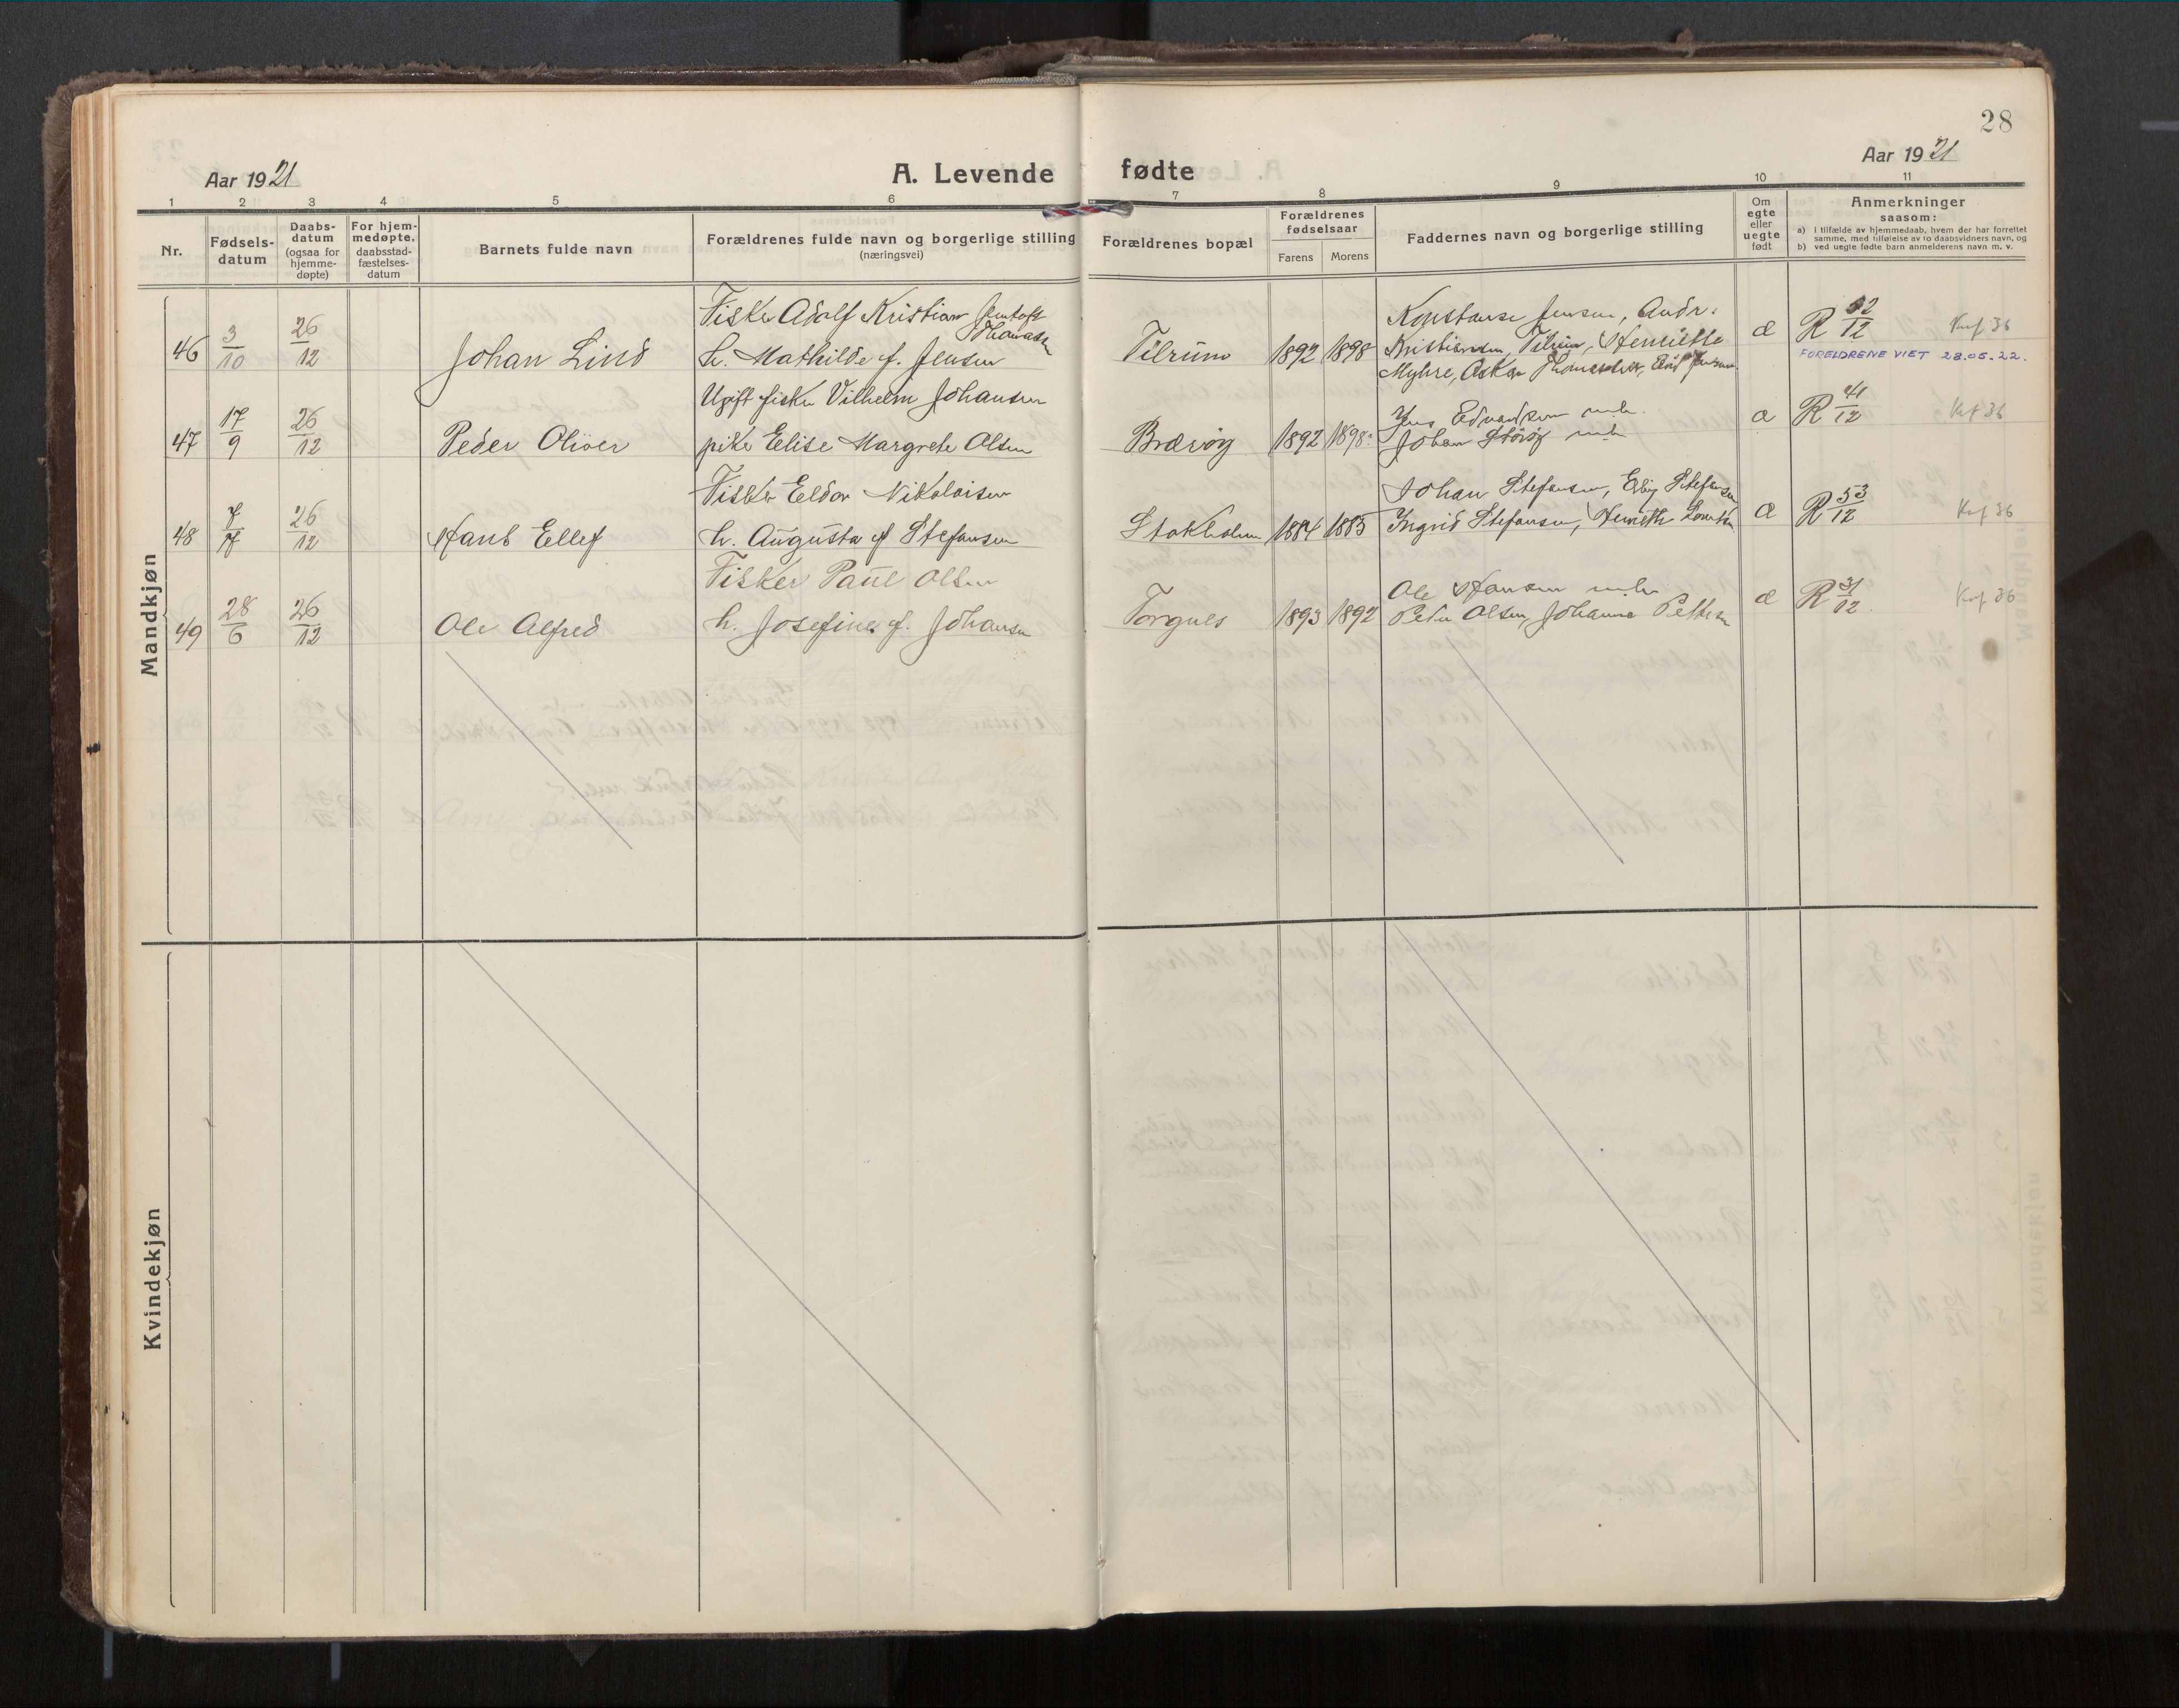 28
Aar 1921
A. Levende fødte
Aar 1921
1 2 3 4 5 6 7 8 9 10 11
Nr.
Fødsels-
datum
Daabs-
datum
(ogsaa for
hjemme-
døpte)
For hjem-
medøpte,
daabsstad-
fæstelses-
datum
Barnets fulde navn
Forældrenes fulde navn og borgerlige stilling
(næringsvei)
Forældrenes bopæl
Forældrenes
fødselsaar
Farens Morens
Faddernes navn og borgerlige stilling
Om
egte
eller
uegte
født
Anmerkninger
saasom:
a) i tilfælde av hjemmedaab, hvem der har forrettet
samme, med tilføielse av to daabsvidners navn, og
b) ved uegte fødte barn anmelderens navn m. v.
Mandkjøn
46 3/10 26/12 Johan Lind
Fisker Adolf Kristian Jentoft
Thomassen
h. Mathilde f. Jensen
Tilrum 1892 1898
Konstanse Jensen, Andr.
Kristiansen, Tilrum, Henriette
Myhre, Oskar Thomassen,
æ R 52/12 Knf 36
FORELDRENE VIET 28.05.22.
47 17/9 26/12 Peder Oliver
Ugift fisker Vilhelm Johansen
pike Elise Margrete Olsen
Brærøy 1892 1898
Jens Edvardsen m.h.
Johan m.h.
R 41/12 Knf 36
48 7/7 26/12 Hans Ellef
Fisker Eldor Nikolaisen
h. Augusta f. Stefansen
Stokholm 1884 1885
Johan Stefansen, Stefansen
Ingrid Stefansen,
æ R 53/12 Knf 36
49 28/6 26/12 Ole Alfred
Fisker Paul Olsen
h. Josefine f. Johansen
Torgnes 1893 1892
Ole Hansen m.h.
Peder Olsen, Johanna Pettersen
æ R 31/12 Knf 36
Kvindekjøn